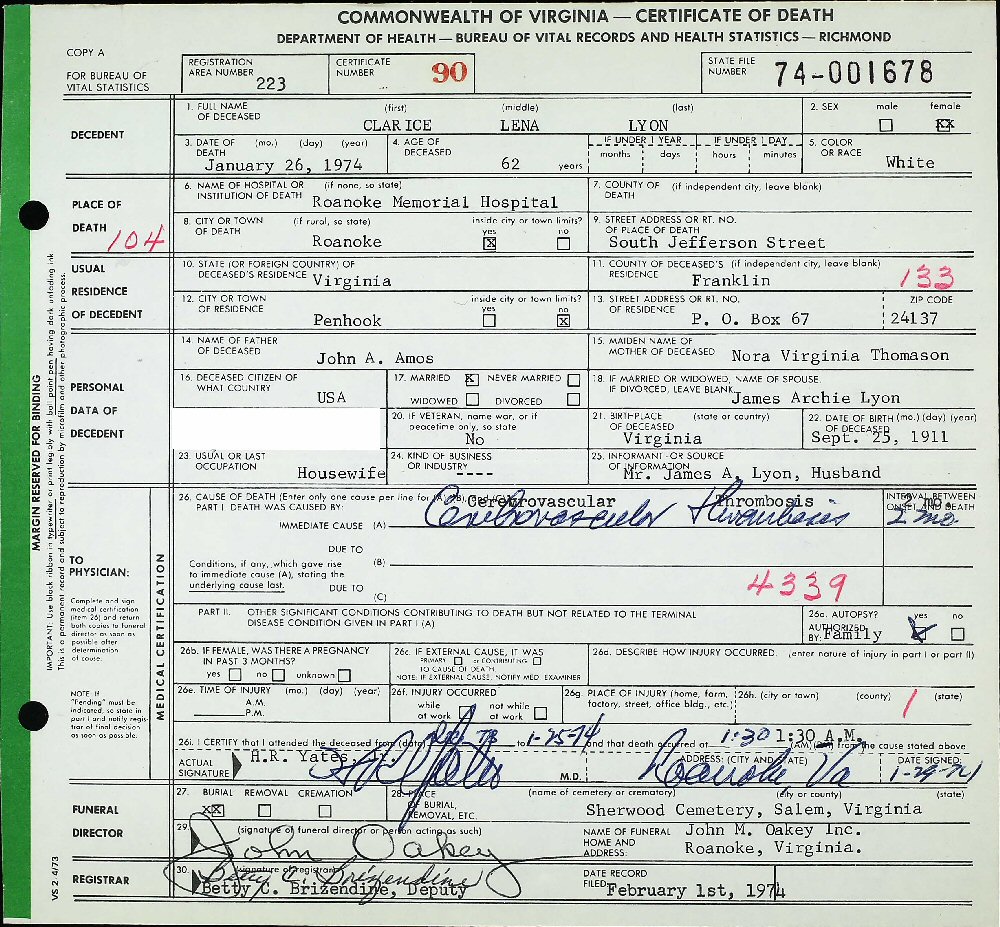 COMMONWEALTH OF VIRGINIA — CERTIFICATE OF DEATH
DEPARTMENT OF HEALTH — BUREAU OF VITAL RECORDS AND HEALTH STATISTICS — RICHMOND
COPY A
FOR BUREAU OF VITAL STATISTICS
REGISTRATION AREA NUMBER 223
CERTIFICATE NUMBER 90
STATE FILE NUMBER 74-001678
DECEDENT
1. FULL NAME OF DECEASED (first) (middle) (last)
CLARICE LENA LYON
2. SEX male female XX
3. DATE OF DEATH (mo.) (day) (year)
January 26, 1974
4. AGE OF DECEASED 62 years
IF UNDER 1 YEAR months days
IF UNDER 1 DAY hours minutes
5. COLOR OR RACE White
PLACE OF DEATH
104
6. NAME OF HOSPITAL OR INSTITUTION OF DEATH (if none, so state) Roanoke Memorial Hospital
7. COUNTY OF DEATH (if independent city, leave blank)
8. CITY OR TOWN OF DEATH (if rural, so state) Roanoke
inside city or town limits? yes X no
9. STREET ADDRESS OR RT. NO. OF PLACE OF DEATH
South Jefferson Street
USUAL RESIDENCE OF DECEDENT
10. STATE (OR FOREIGN COUNTRY) OF DECEASED'S RESIDENCE Virginia
11. COUNTY OF DECEASED'S RESIDENCE (if independent city, leave blank) Franklin
133
12. CITY OR TOWN OF RESIDENCE Penhook
inside city or town limits? yes no X
13. STREET ADDRESS OR RT. NO. OF RESIDENCE P. O. Box 67
ZIP CODE 24137
PERSONAL DATA OF DECEDENT
14. NAME OF FATHER OF DECEASED John A. Amos
15. MAIDEN NAME OF MOTHER OF DECEASED Nora Virginia Thomason
16. DECEASED CITIZEN OF WHAT COUNTRY USA
17. MARRIED X NEVER MARRIED
WIDOWED DIVORCED
18. IF MARRIED OR WIDOWED, NAME OF SPOUSE. IF DIVORCED, LEAVE BLANK James Archie Lyon
20. IF VETERAN, name war, or if peacetime only, so state No
21. BIRTHPLACE OF DECEASED (state or country) Virginia
22. DATE OF BIRTH OF DECEASED (mo.) (day) (year) Sept. 25, 1911
23. USUAL OR LAST OCCUPATION Housewife
24. KIND OF BUSINESS OR INDUSTRY ----
25. INFORMANT - OR SOURCE OF INFORMATION Mr. James A. Lyon, Husband
TO PHYSICIAN:
Complete and sign medical certification (item 26) and return both copies to funeral director as soon as possible after determination of cause.
NOTE: If "Pending" must be indicated, so state in part I and notify registrar of final decision as soon as possible.
MEDICAL CERTIFICATION
26. CAUSE OF DEATH (Enter only one cause per line for (A), (B), and (C))
PART I. DEATH WAS CAUSED BY:
IMMEDIATE CAUSE (A) Cerebrovascular Thrombosis
Cerebrovascular Thrombosis
INTERVAL BETWEEN ONSET AND DEATH
2 mo.
2 mo.
DUE TO
Conditions, if any, which gave rise to immediate cause (A), stating the underlying cause last. (B)
DUE TO
(C)
4339
PART II. OTHER SIGNIFICANT CONDITIONS CONTRIBUTING TO DEATH BUT NOT RELATED TO THE TERMINAL DISEASE CONDITION GIVEN IN PART I (A)
26a. AUTOPSY? yes no
AUTHORIZED BY: Family
26b. IF FEMALE, WAS THERE A PREGNANCY IN PAST 3 MONTHS?
yes no unknown
26c. IF EXTERNAL CAUSE, IT WAS
PRIMARY or CONTRIBUTING
TO CAUSE OF DEATH
NOTE: IF EXTERNAL CAUSE, NOTIFY MED. EXAMINER
26d. DESCRIBE HOW INJURY OCCURRED. (enter nature of injury in part I or part II)
26e. TIME OF INJURY (mo.) (day) (year)
A.M.
P.M.
26f. INJURY OCCURRED
while at work not while at work
26g. PLACE OF INJURY (home, farm, factory, street, office bldg., etc.)
26h. (city or town) (county) (state)
1
26i. I CERTIFY that I attended the deceased from (date) 73 to 1-25-74 and that death occurred at 1:30 1:30 A.M. (AM) from the cause stated above
ACTUAL SIGNATURE H.R. Yates M.D.
ADDRESS: (CITY AND STATE) Roanoke, Va
DATE SIGNED:
1-29-74
FUNERAL DIRECTOR
27. BURIAL REMOVAL CREMATION
XX
28. PLACE OF BURIAL, REMOVAL, ETC. (name of cemetery or crematory) (city or county) (state)
Sherwood Cemetery, Salem, Virginia
29. (signature of funeral director or person acting as such)
John Oakey
NAME OF FUNERAL HOME AND ADDRESS: John M. Oakey Inc.
Roanoke, Virginia.
REGISTRAR
30. (signature of registrar)
Betty C. Brizendine
Betty C. Brizendine, Deputy
DATE RECORD FILED: February 1st, 1974
MARGIN RESERVED FOR BINDING
IMPORTANT: Use black ribbon in typewriter or print legibly with ball point pen having dark unfading ink
This is a permanent record and subject to reproduction by microfilm and other photographic process.
VS 2 4/73